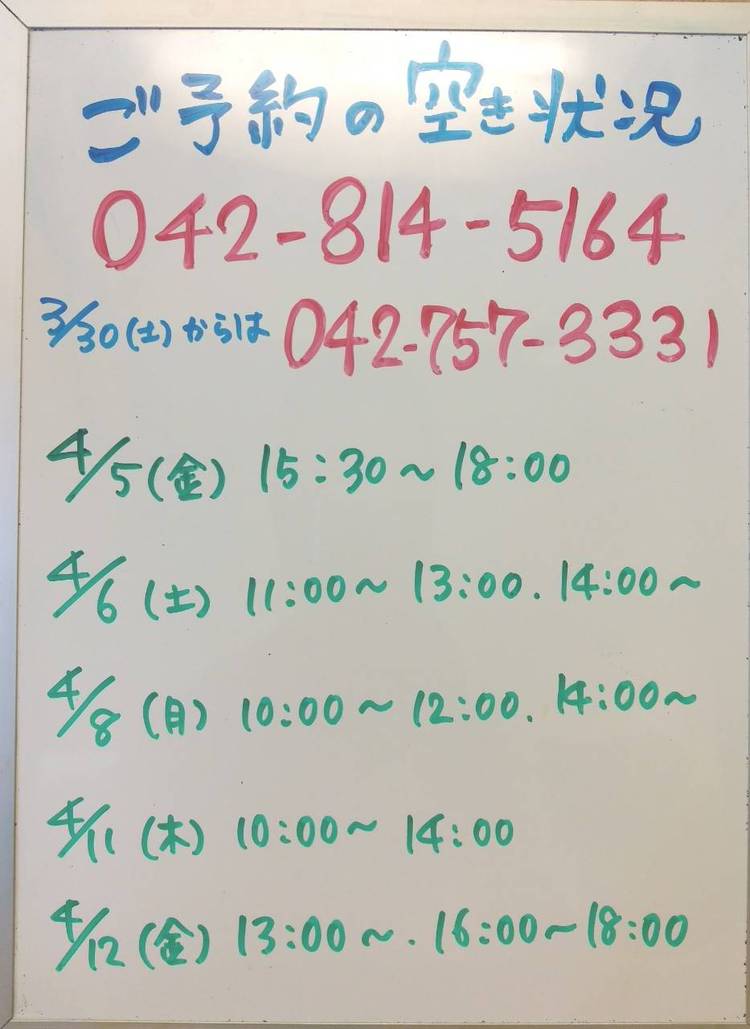 ご予約の空き状況
042-814-5164
3/30(土)からは 042-757-3331
4/5(金) 15:30〜18:00
4/6(土) 11:00〜13:00. 14:00〜
4/8(月) 10:00〜12:00. 14:00〜
4/11(木) 10:00〜14:00
4/12(金) 13:00〜. 16:00〜18:00